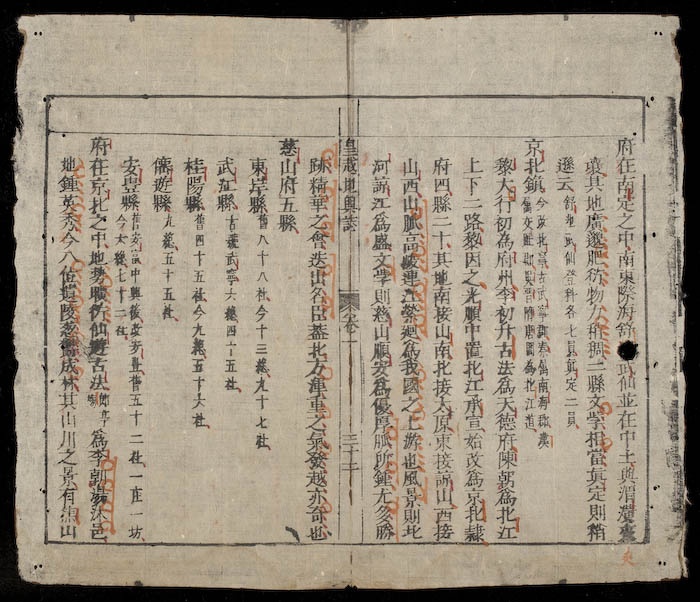 府在南定之中南東際海舒池武仙並在中土與渭瀆
真其地廣邈肥衍物力稍稠二縣文學相當真定則稍
遜云 舒池武仙登科各七員真定二員
京北鎮 今改北寧古武寧 秦為南海郡漢
黎大行初為府州李初升古法為天德府陳朝為北江
上下二路黎因之光順中置北江承宣始改為京北隸
府四縣二十其地南接山南北接太原東接諒山西接
山西山脈高峻連江縈廻為我國之上游也風景則北
河諒江為盛文學則慈山順安為優厚脈所鍾尤多勝
跡精華之會迭出名臣蓋北方準重之氣發越亦奇也
皇越地輿誌 卷一 三十二
慈山府五縣
東岸縣 舊八十八社今十三總九十七社
武江縣 古號武寧六總四十五社
桂陽縣 舊四十五社今九總五十六社
僊遊縣 九總五十五社
安豐縣 舊安富中興後改安豐舊五十二社一庄一坊 今六總七十二社
府在京北之中地勢 仙遊古法 為李朝湯沐邑
地鍾英秀今八位遺陵葱鬱成林其山川之景有焦山